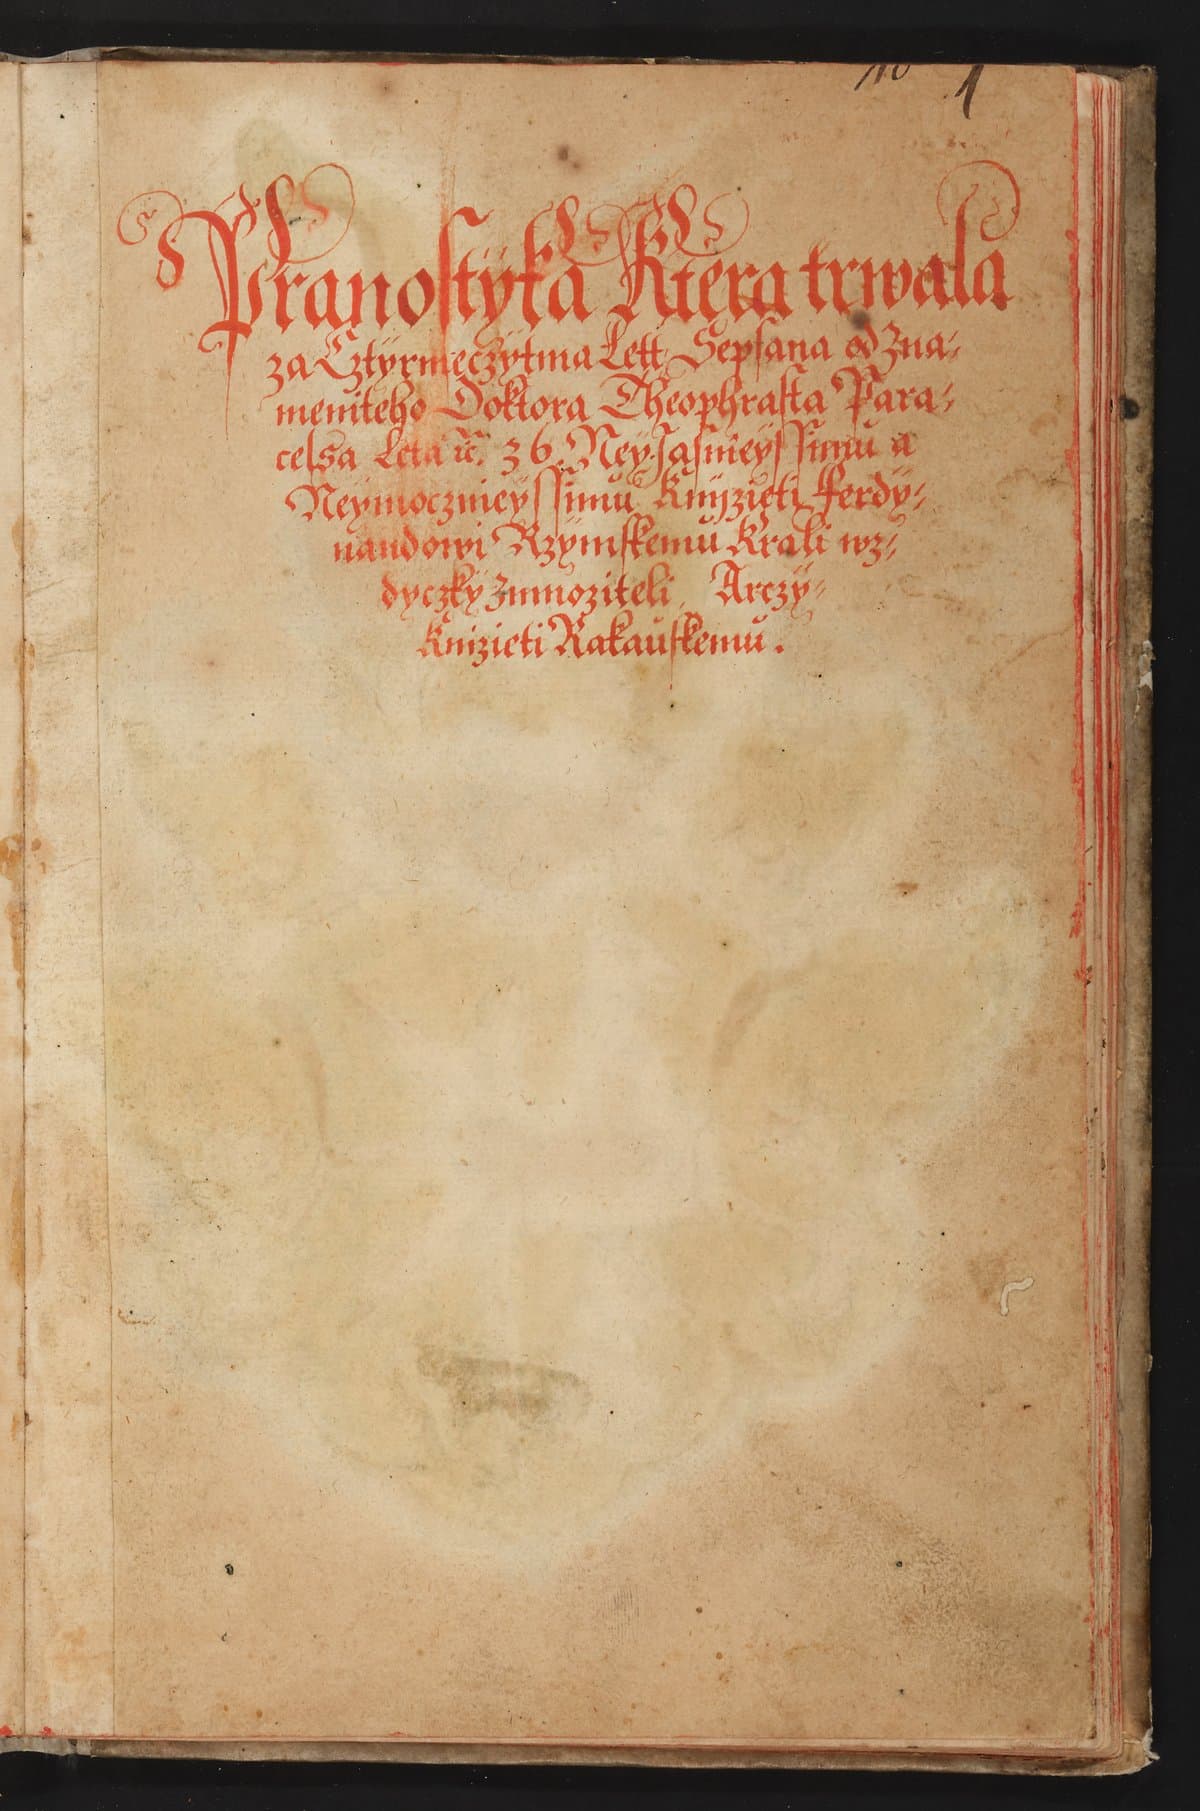 1
Pranostyka Ktera trwala
za Cztyrmeczytma Lett Sepsana od Zna⸗
meniteho Doktora Theophrasta Para⸗
celsa Leta ꝛč. 36. Neyjasnieyssimu a
Neymocznieyssimu Knijzieti Ferdy⸗
nandowi Rzymskemu Krali wz⸗
dyczky Zmnoziteli, Arczy⸗
Knizieti Rakauskemu.